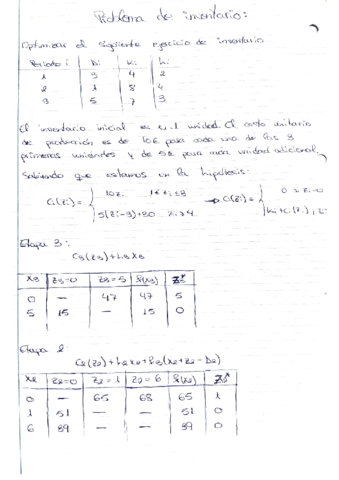 Problema de inventario:
Optimizar el siguiente ejercicio de inventario
Periodo i | Di | Ki | hi
1 | 3 | 4 | 2
2 | 1 | 8 | 4
3 | 5 | 7 | 3
El inventario inicial es 1 unidad. El costo unitario
de producción es de 10€ para cada uno de las 3
primeras unidades y de 5€ para cada unidad adicional.
Sabiendo que estamos en la hipótesis:
Etapa 3:
C3(z3)+h3x3
x3 | z3=0 | z3=5 | f(x3) | z3*
0 | — | 47 | 47 | 5
5 | 15 | — | 15 | 0
Etapa 2:
C2(z2)+h2x2+f3(x2+z2-D2)
x2 | z2=0 | z2=1 | z2=6 | f(x2) | z2*
0 | — | 65 | 68 | 65 | 1
1 | 51 | — | — | 51 | 0
6 | 39 | — | — | 39 | 0